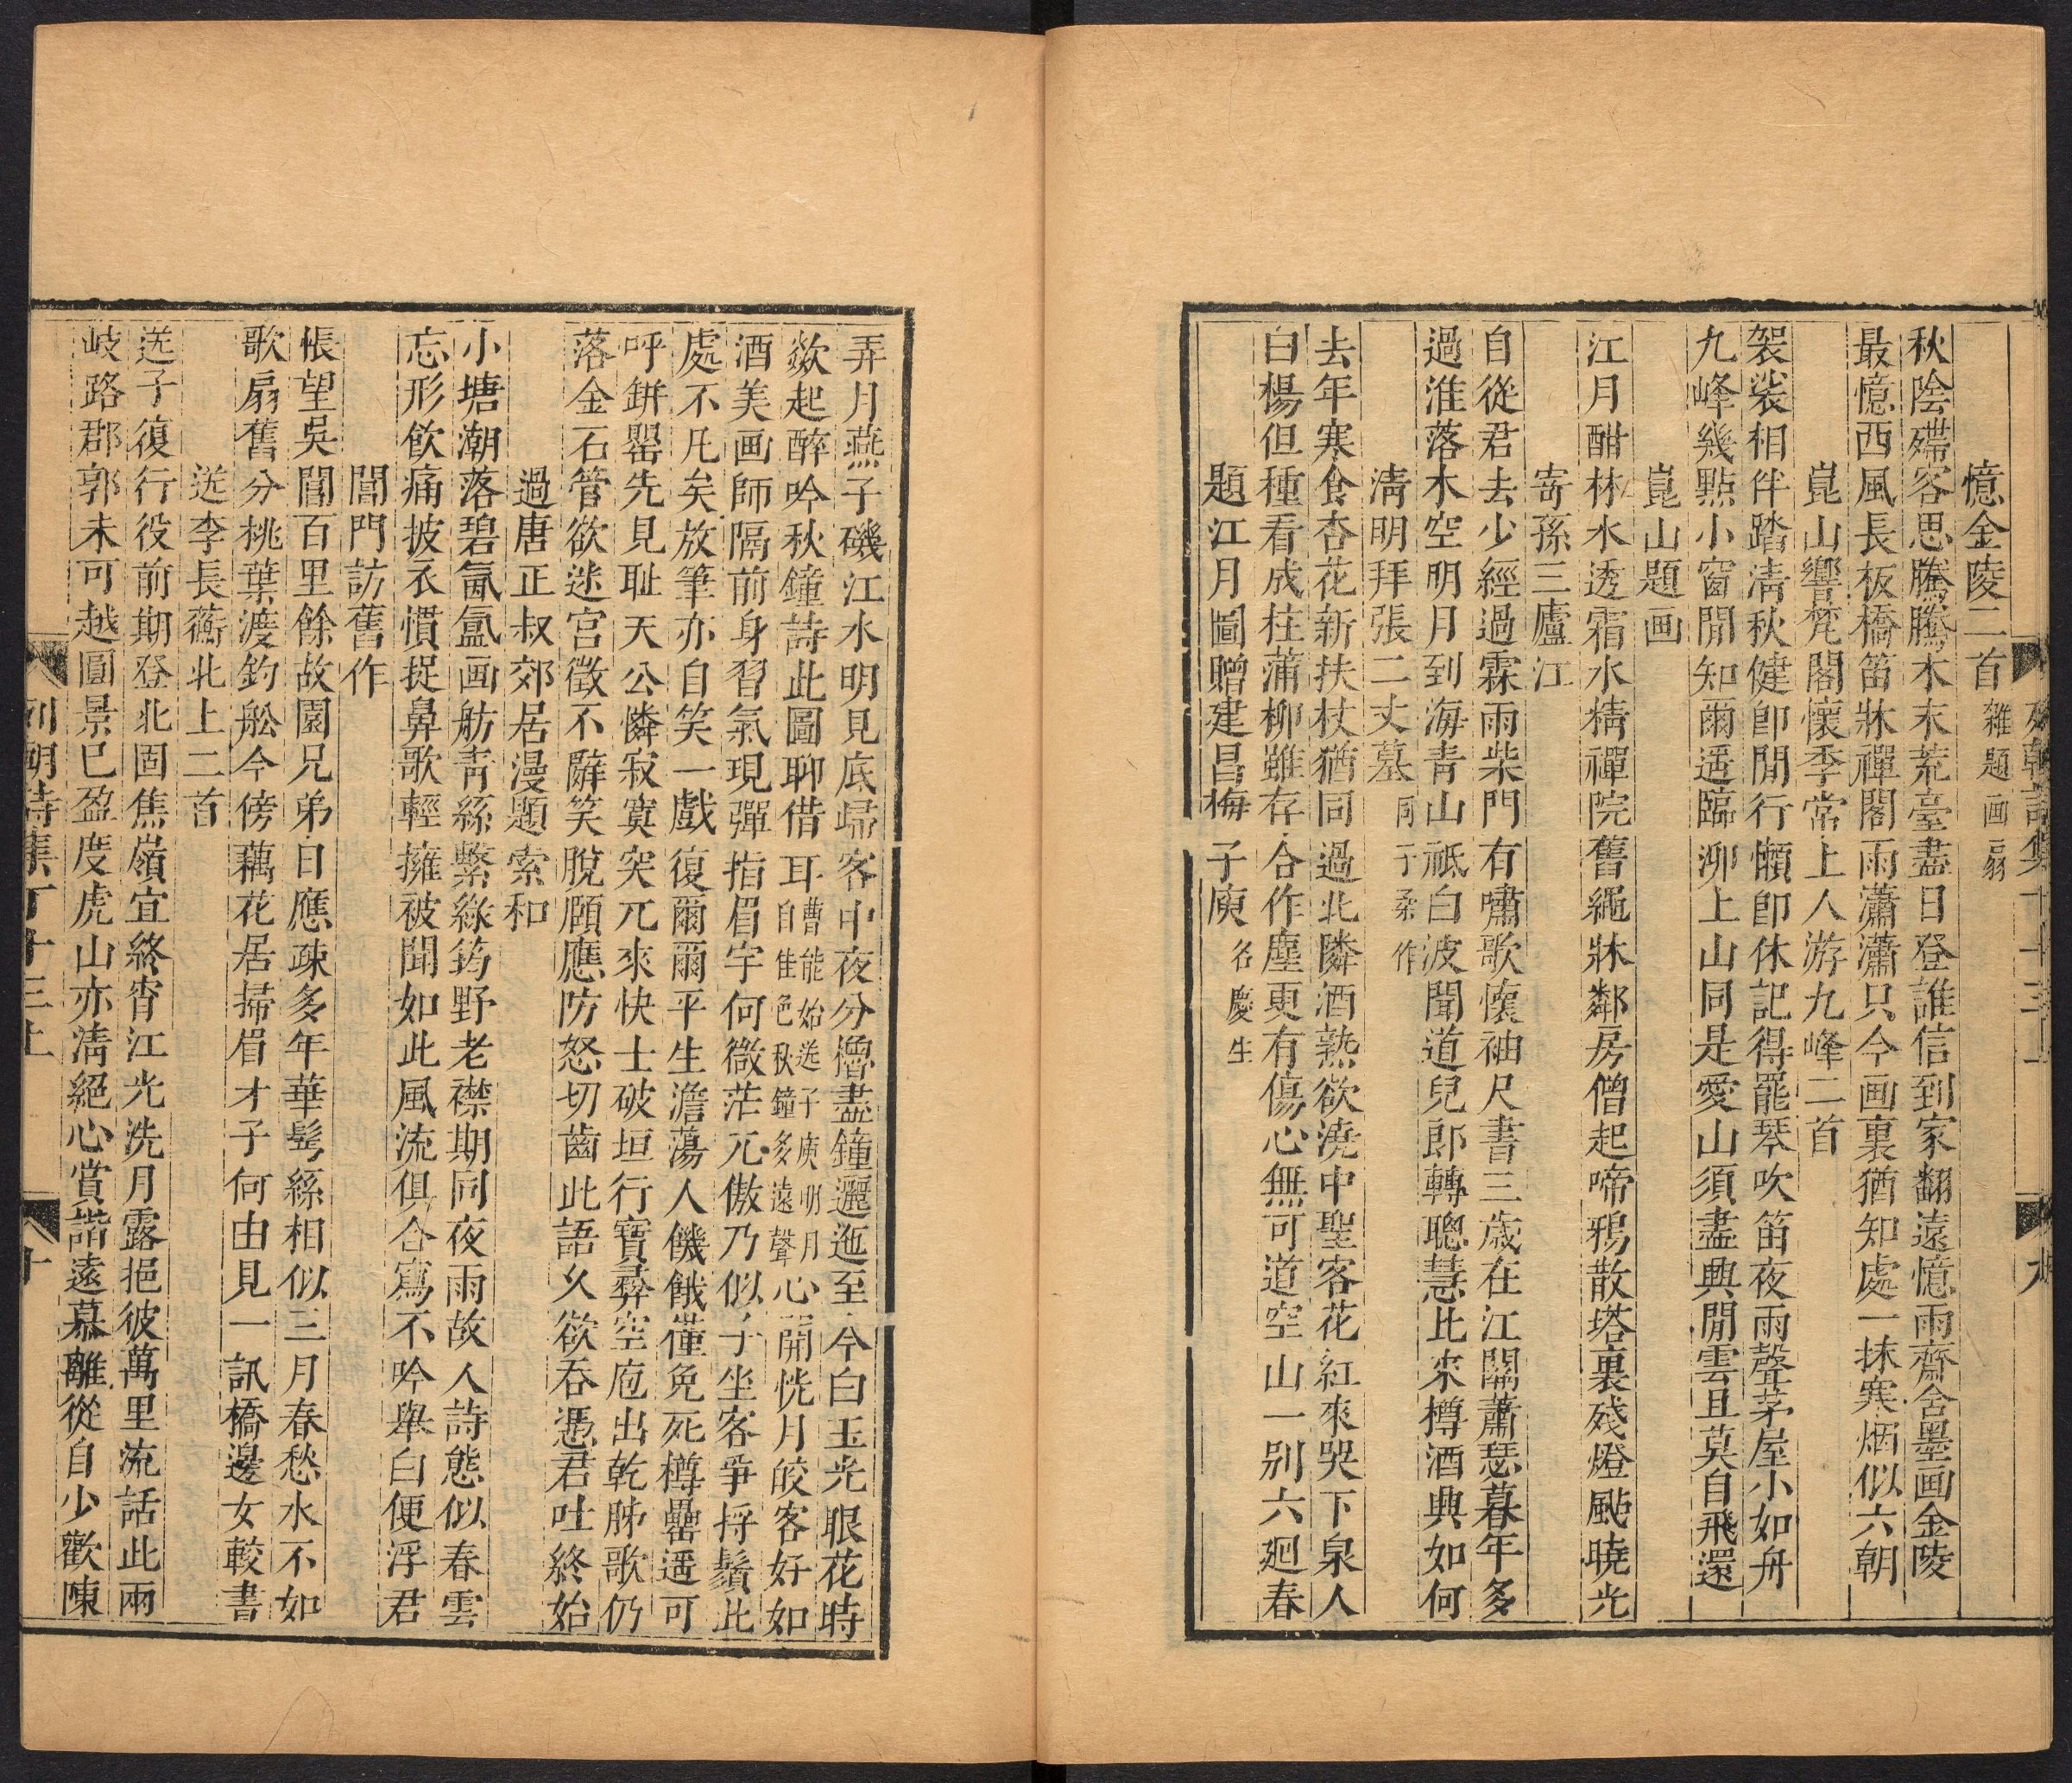 憶金陵二首雜題画扇
秋陰殢客思騰騰木末荒臺盡日登誰信到家翻遠憶雨齋舍墨画金陵
最憶西風長板橋笛牀禪閣雨瀟瀟只今画裏猶知處一抹寒烟似六朝
崑山響梵閣懷季常上人游九峰二首
袈裟相伴踏淸秋健卽閒行懶卽休記得罷琴吹笛夜雨聲茅屋小如舟
九峰幾點小窗閒知爾遥臨泖上山同是愛山須盡興閒雲且莫自飛還
崑山題画
江月酣林水透霜水精禪院舊繩牀鄰房僧起啼鴉散塔裏殘燈颭曉光
寄孫三廬江
自從君去少經過霖雨柴門有嘯歌懷袖尺書三歲在江關蕭瑟暮年多
過淮落木空明月到海靑山祗白波聞道兒郎轉聰慧比來樽酒典如何
淸明拜張二丈墓同子柔作
去年寒食杏花新扶杖猶同過北隣酒熟欲澆中聖客花紅來哭下泉人
白楊但種看成柱蒲柳雖存合作塵更有傷心無可道空山一别六廻春
題江月圖贈建昌梅子庾名慶生
弄月燕子磯江水明見底歸客中夜分櫓盡鐘邐迤至今白玉光眼花時
欻起醉吟秋鐘詩此圖聊借耳曹能始送子庾明月自佳色秋鐘多遠聲心開恍月皎客好如
酒美画師隔前身習氣現彈指眉宇何微茫兀傲乃似子坐客爭捋鬚此
處不凡矣放筆亦自笑一戲復爾爾平生澹蕩人饑餓僅免死樽罍遥可
呼缾罌先見耻天公隣寂寞突兀來快士破垣行寶彛空庖出乾胏歌仍
落金石管欲迷宫徵不辭笑脫頤應防怒切齒此語久欲吞慿君吐終始
過唐正叔郊居漫題索和
小塘潮落碧氤氳画舫靑絲繫綠筠野老襟期同夜雨故人詩態似春雲
忘形飮痛披衣慣捉鼻歌輕擁被聞如此風流俱合寫不吟舉白便浮君
閶門訪舊作
悵望吳閶百里餘故園兄弟日應疎多年華髩絲相似三月春愁水不如
歌扇舊分桃葉渡釣舩今傍藕花居掃眉才子何由見一訊橋邊女較書
送李長蘅北上二首
送子復行役前期登北固焦嶺宜終宵江光洗月露挹彼萬里流話此兩
岐路郡郭未可越圓景已盈度虎山亦淸絕心賞諧遠慕離從自少歡陳
列朝詩集丁十三上
十